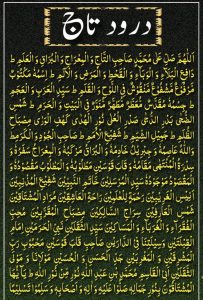 درود تاج
اَللّٰهُمَّ صَلِّ عَلٰی مُحَمَّدٍ صَاحِبِ التَّاجِ وَالْمِعْرَاجِ وَالْبُرَاقِ وَالْعَلَمِ ط
دَافِعِ الْبَلَاءِ وَالْوَبَاءِ وَالْقَحْطِ وَالْمَرَضِ وَالْاَلَمِ ط اِسْمُهٗ مَكْتُوْبٌ
مَرْفُوْعٌ مَشْفُوْعٌ مَنْقُوْشٌ فِی اللَّوْحِ وَالْقَلَمِ ط سَيِّدِ الْعَرَبِ وَالْعَجَمِ
ط جِسْمُهٗ مُقَدَّسٌ مُعَطَّرٌ مُطَهَّرٌ مُنَوَّرٌ فِی الْبَيْتِ وَالْحَرَمِ ط شَمْسِ
الضُّحٰی بَدْرِ الدُّجٰی صَدْرِ الْعُلٰی نُوْرِ الْهُدٰی كَهْفِ الْوَرٰی مِصْبَاحِ
الظُّلَمِ ط جَمِيْلِ الشِّيَمِ ط شَفِيْعِ الْاُمَمِ ط صَاحِبِ الْجُوْدِ وَالْكَرَمِ ط
وَاللّٰهُ عَاصِمُهٗ وَجِبْرِيْلُ خَادِمُهٗ وَالْبُرَاقُ مَرْكَبُهٗ وَالْمِعْرَاجُ سَفَرُهٗ وَ
سِدْرَةُ الْمُنْتَهٰی مَقَامُهٗ وَقَابَ قَوْسَيْنِ مَطْلُوْبُهٗ وَالْمَطْلُوْبُ مَقْصُوْدُهٗ وَ
الْمَقْصُوْدُ مَوْجُوْدُهٗ سَيِّدِ الْمُرْسَلِيْنَ خَاتَمِ النَّبِيِّيْنَ شَفِيْعِ الْمُذْنِبِيْنَ
اَنِيْسِ الْغَرِيْبِيْنَ رَحْمَةٍ لِّلْعَالَمِيْنَ رَاحَةِ الْعَاشِقِيْنَ مُرَادِ الْمُشْتَاقِيْنَ
شَمْسِ الْعَارِفِيْنَ سِرَاجِ السَّالِكِيْنَ مِصْبَاحِ الْمُقَرَّبِيْنَ مُحِبِّ
الْفُقَرَاءِ وَالْغُرَبَاءِ وَالْمَسَاكِيْنِ سَيِّدِ الثَّقَلَيْنِ نَبِیِّ الْحَرَمَيْنِ اِمَامِ
الْقِبْلَتَيْنِ وَسِيْلَتِنَا فِی الدَّارَيْنِ صَاحِبِ قَابَ قَوْسَيْنِ مَحْبُوْبِ رَبِّ
الْمَشْرِقَيْنِ وَالْمَغْرِبَيْنِ جَدِّ الْحَسَنِ وَالْحُسَيْنِ مَوْلَانَا وَمَوْلَی
الثَّقَلَيْنِ اَبِی الْقَاسِمِ مُحَمَّدِ بْنِ عَبْدِ اللّٰهِ نُوْرٍ مِّنْ نُوْرِ اللّٰهِ ط يٰاَيُّهَا
الْمُشْتَاقُوْنَ بِنُوْرِ جَمَالِهٖ صَلُّوْا عَلَيْهِ وَاٰلِهٖ وَاَصْحَابِهٖ وَسَلِّمُوْا تَسْلِيْمًا